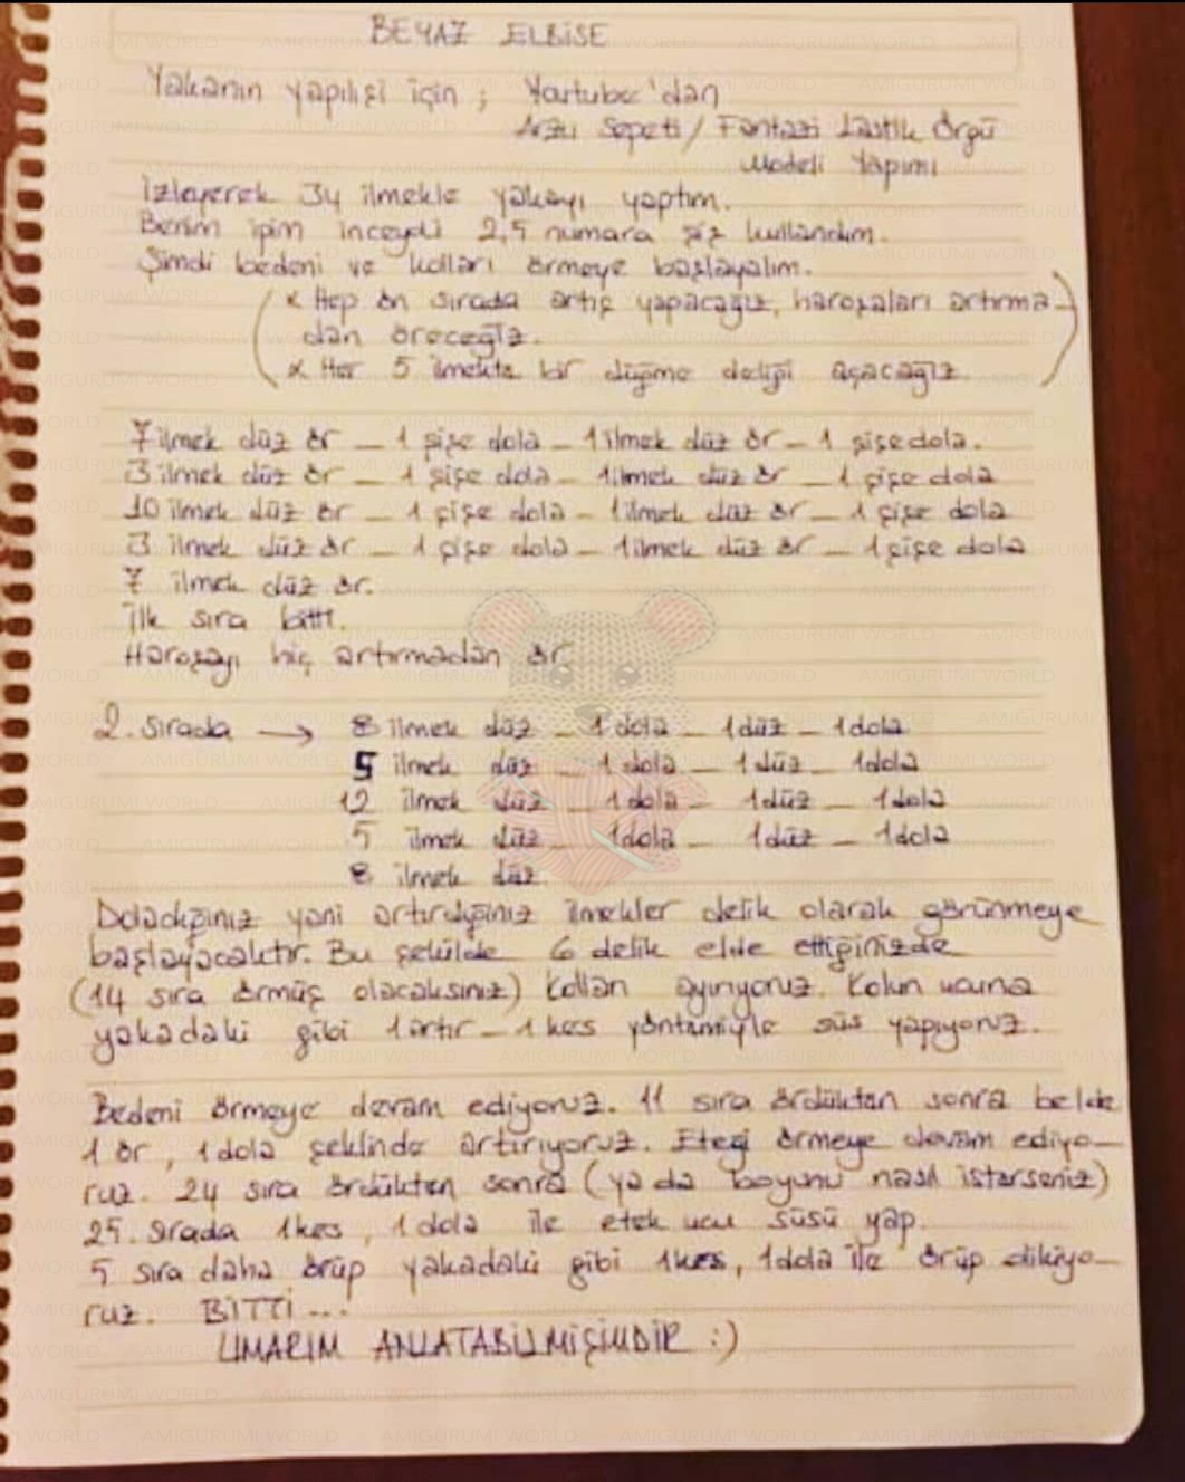 BEYAZ ELBİSE
Yakanın yapılışı için ; Yortube'dan
Arzu Sepeti / Fantazi Lastik Örgü
Modeli Yapımı
İzleyerek 34 ilmekle yakayı yaptım.
Benim ipim inceydi 2,5 numara şiş kullandım.
Şimdi bedeni ve kolları örmeye başlayalım.
x Hep ön sırada artış yapacağız, haroşaları artırma-
dan öreceğiz.
x Her 5 ilmekte bir düğme deliği açacağız.
7 ilmek düz ör - 1 şişe dola - 1 ilmek düz ör - 1 şişe dola.
3 ilmek düz ör - 1 şişe dola - 1 ilmek düz ör - 1 şişe dola
10 ilmek düz ör - 1 şişe dola - 1 ilmek düz ör - 1 şişe dola
3 ilmek düz ör - 1 şişe dola - 1 ilmek düz ör - 1 şişe dola
7 ilmek düz ör.
İlk sıra bitti.
Haroşayı hiç artırmadan ör
2. sırada → 8 ilmek düz - 1 dola - 1 düz - 1 dola
5 ilmek düz - 1 dola - 1 düz - 1 dola
12 ilmek düz - 1 dola - 1 düz - 1 dola
5 ilmek düz - 1 dola - 1 düz - 1 dola
8 ilmek düz
Doladığınız yani artırdığınız ilmekler delik olarak görünmeye
başlayacaktır. Bu şekilde 6 delik elde ettiğinizde
(14 sıra örmüş olacaksınız) kolları ayırıyoruz. Kolun ucuna
yakadaki gibi 1 artır - 1 kes yöntemiyle süs yapıyoruz.
Bedeni örmeye devam ediyoruz. 11 sıra ördükten sonra belde
1 ör, 1 dola şeklinde artırıyoruz. Eteği örmeye devam ediyo-
ruz. 24 sıra ördükten sonra (ya da boyunu nasıl isterseniz)
25. sırada 1 kes, 1 dola ile etek ucu süsü yap.
5 sıra daha örüp yakadaki gibi 1 kes, 1 dola ile örüp dikiyo-
ruz. BİTTİ ...
UMARIM ANLATABİLMİŞİMDİR :)
AMIGURUMI WORLD